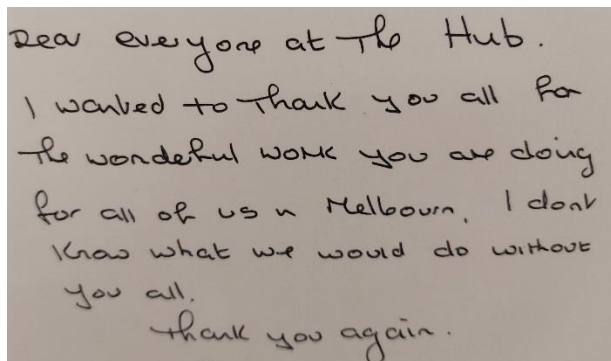 Dear everyone at The Hub.
I wanted to Thank you all for
the wondeful work you are doing
for all of us n Melbourn, I dont
know what we would do without
you all.
Thank you again.